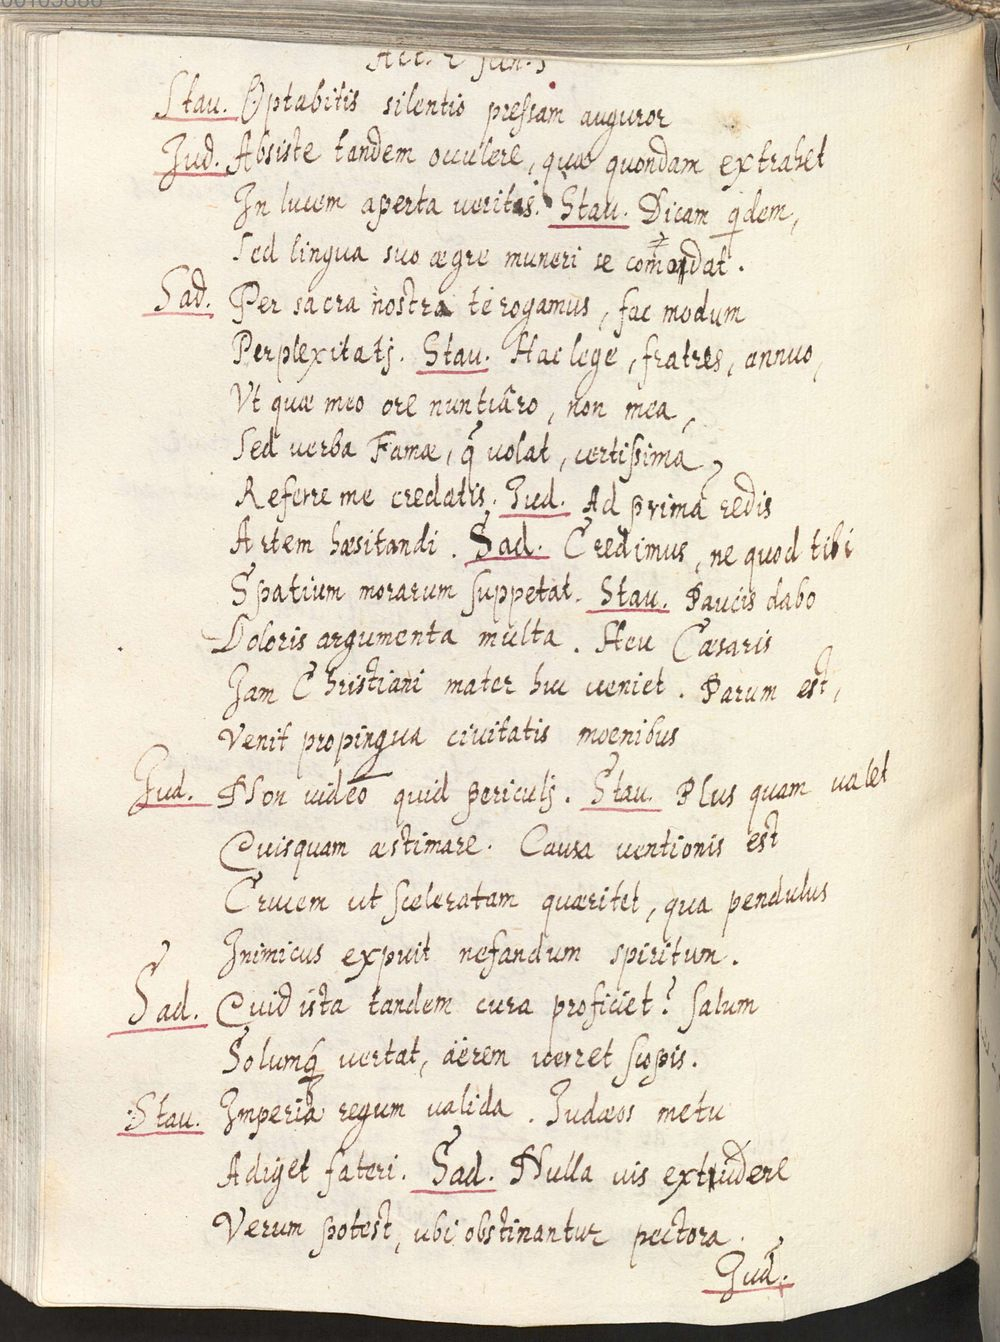 Act. 2 scen. 3
Stau. Optabitis silentio pressam auguror
Jud. Absiste tandem occulere, quae quondam extrahet
In lucem aperta veritas. Stau. Dicam qdem,
Sed lingua suo aegre muneri se comodat.
Sad. Per sacra nostra te rogamus, fac modum
Perplexitatj. Stau. Hac lege, fratres, annuo,
Vt quae meo ore nuntiâro, non mea,
Sed verba Famae, q volat, certissima
Referre me credatis. Jud. Ad prima redis
Artem haesitandi. Sad. Credimus, ne quod tibi
Spatium morarum suppetat. Stau. Paucis dabo
Doloris argumenta multa. Heu Caesaris
Jam Christiani mater huc veniet. Parum est,
Venit propinqua civitatis moenibus
Jud. Non video quid periculj. Stau. Plus quam valet
Cuisquam aestimare. Causa ventionis est
Crucem ut sceleratam quaeritet, qua pendulus
Inimicus expuit nefandum spiritum.
Sad. Cuid ista tandem cura proficiet? Salum
Solumq vertat, aërem verret scopis.
Stau. Imperia regum valida. Judaeos metu
Adiget fateri. Sad. Nulla vis extrudere
Verum potest, ubi obstinantur pectora.
Jud.